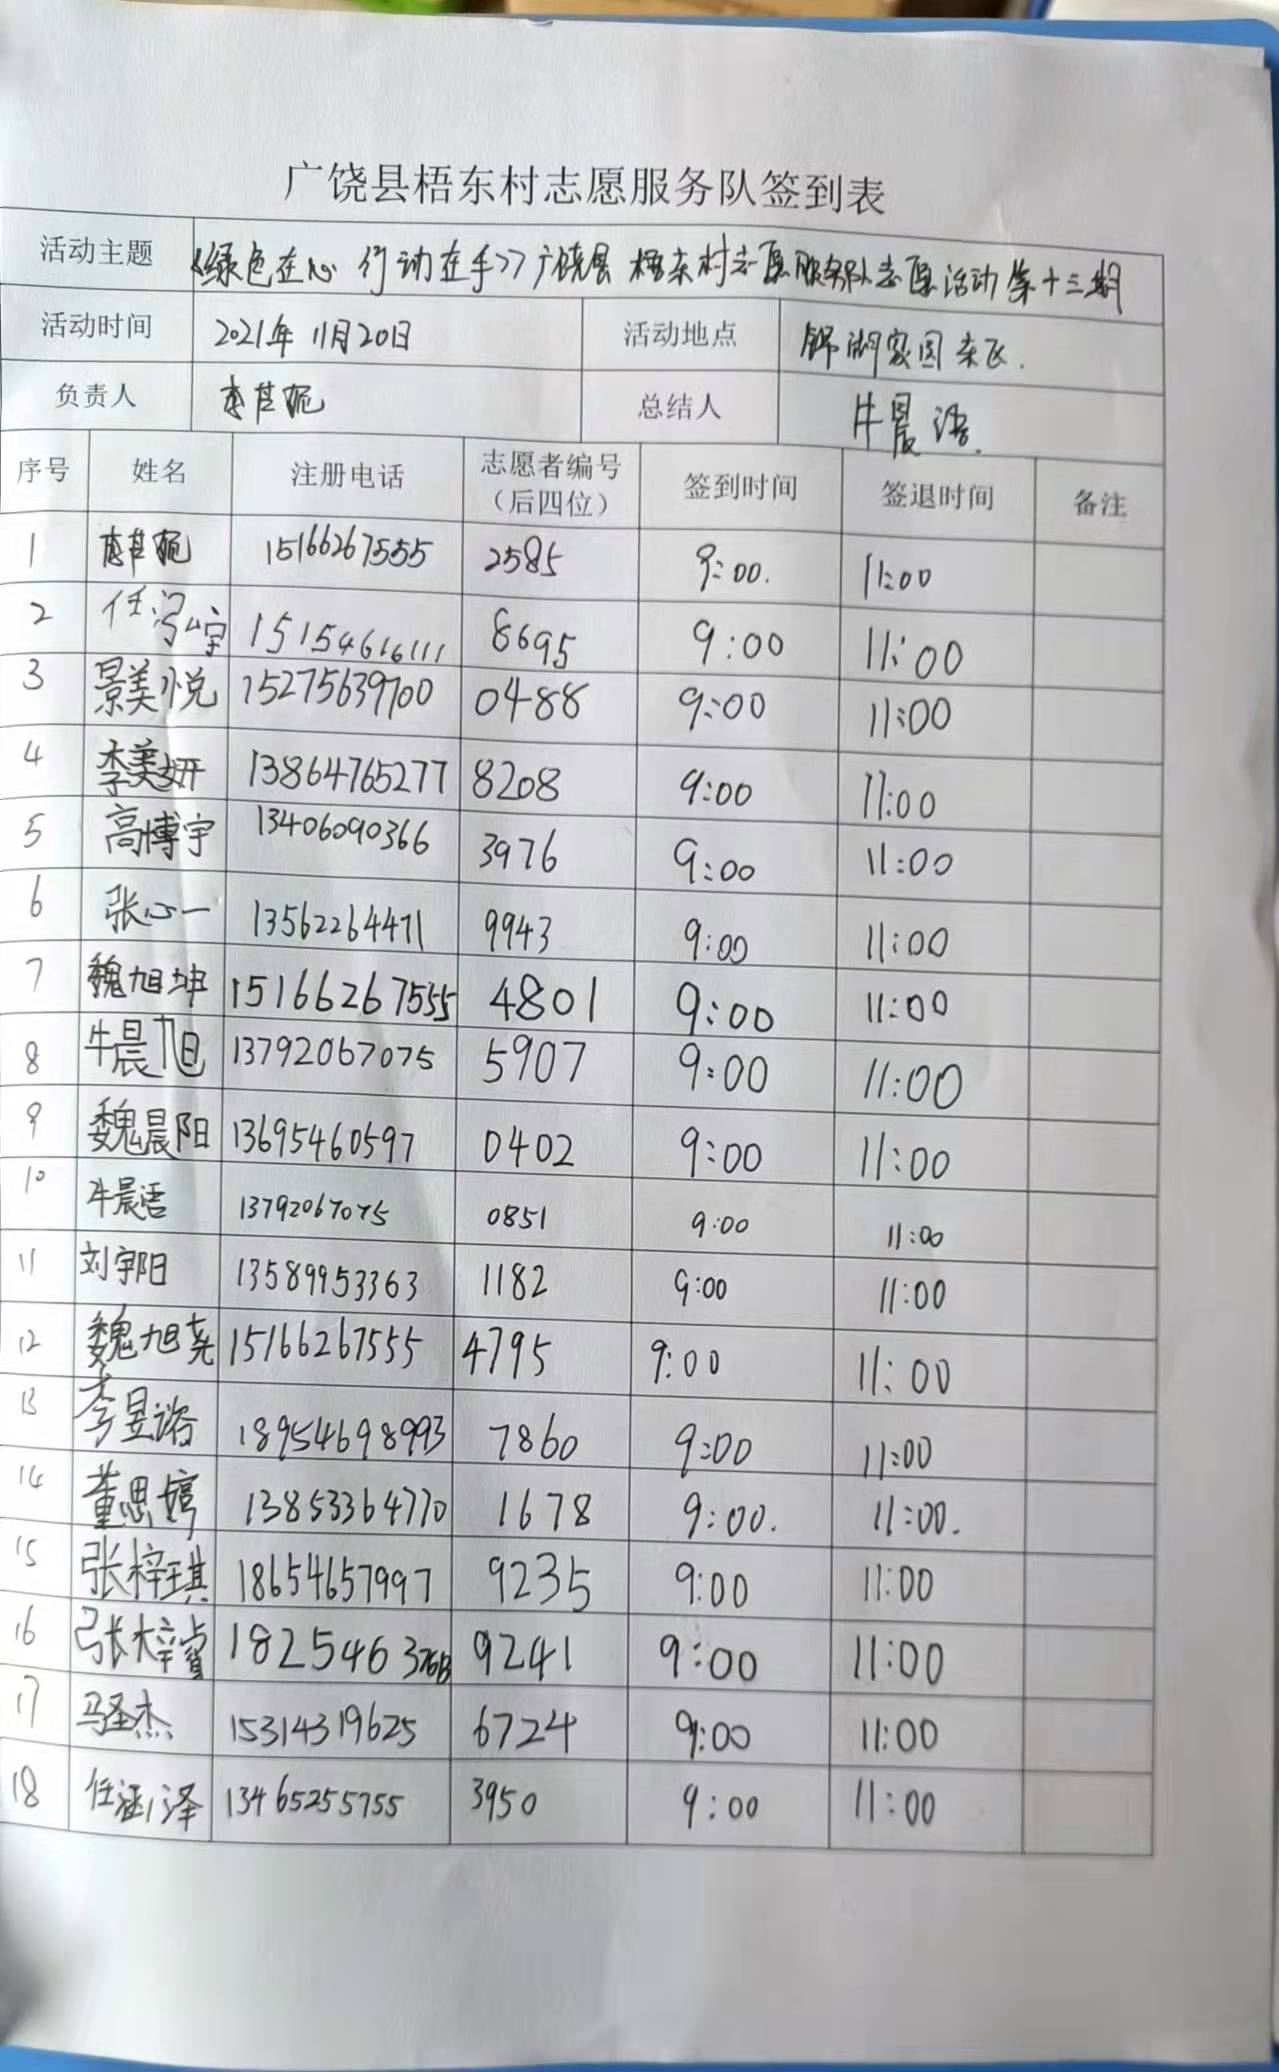 广饶县梧东村志愿服务队签到表
活动主题 《绿色在心 行动在手》广饶县 梧东村志愿服务队志愿活动第十三期
活动时间 2021年11月20日 活动地点 锦湖家园东区.
负责人 总结人 牛晨语.
序号 姓名 注册电话 志愿者编号（后四位） 签到时间 签退时间 备注
1 15166267555 2585 9:00. 11:00
2 任 宇 15154616111 8695 9:00 11:00
3 景美悦 15275639700 0488 9:00 11:00
4 李美妍 13864765277 8208 9:00 11:00
5 高博宇 13406090366 3976 9:00 11:00
6 张心一 13562264471 9943 9:00 11:00
7 魏旭坤 15166267555 4801 9:00 11:00
8 牛晨旭 13792067075 5907 9:00 11:00
9 魏晨阳 13695460597 0402 9:00 11:00
10 牛晨语 13792067075 0851 9:00 11:00
11 刘宇阳 13589953363 1182 9:00 11:00
12 魏旭尧 15166267555 4795 9:00 11:00
13 李昱谘 18954698993 7860 9:00 11:00
14 董思婷 13853364770 1678 9:00. 11:00.
15 张梓琪 18654657997 9235 9:00 11:00
16 张梓 1825463 9241 9:00 11:00
17 马圣杰 15314319625 6724 9:00 11:00
18 任涵泽 13465255755 3950 9:00 11:00